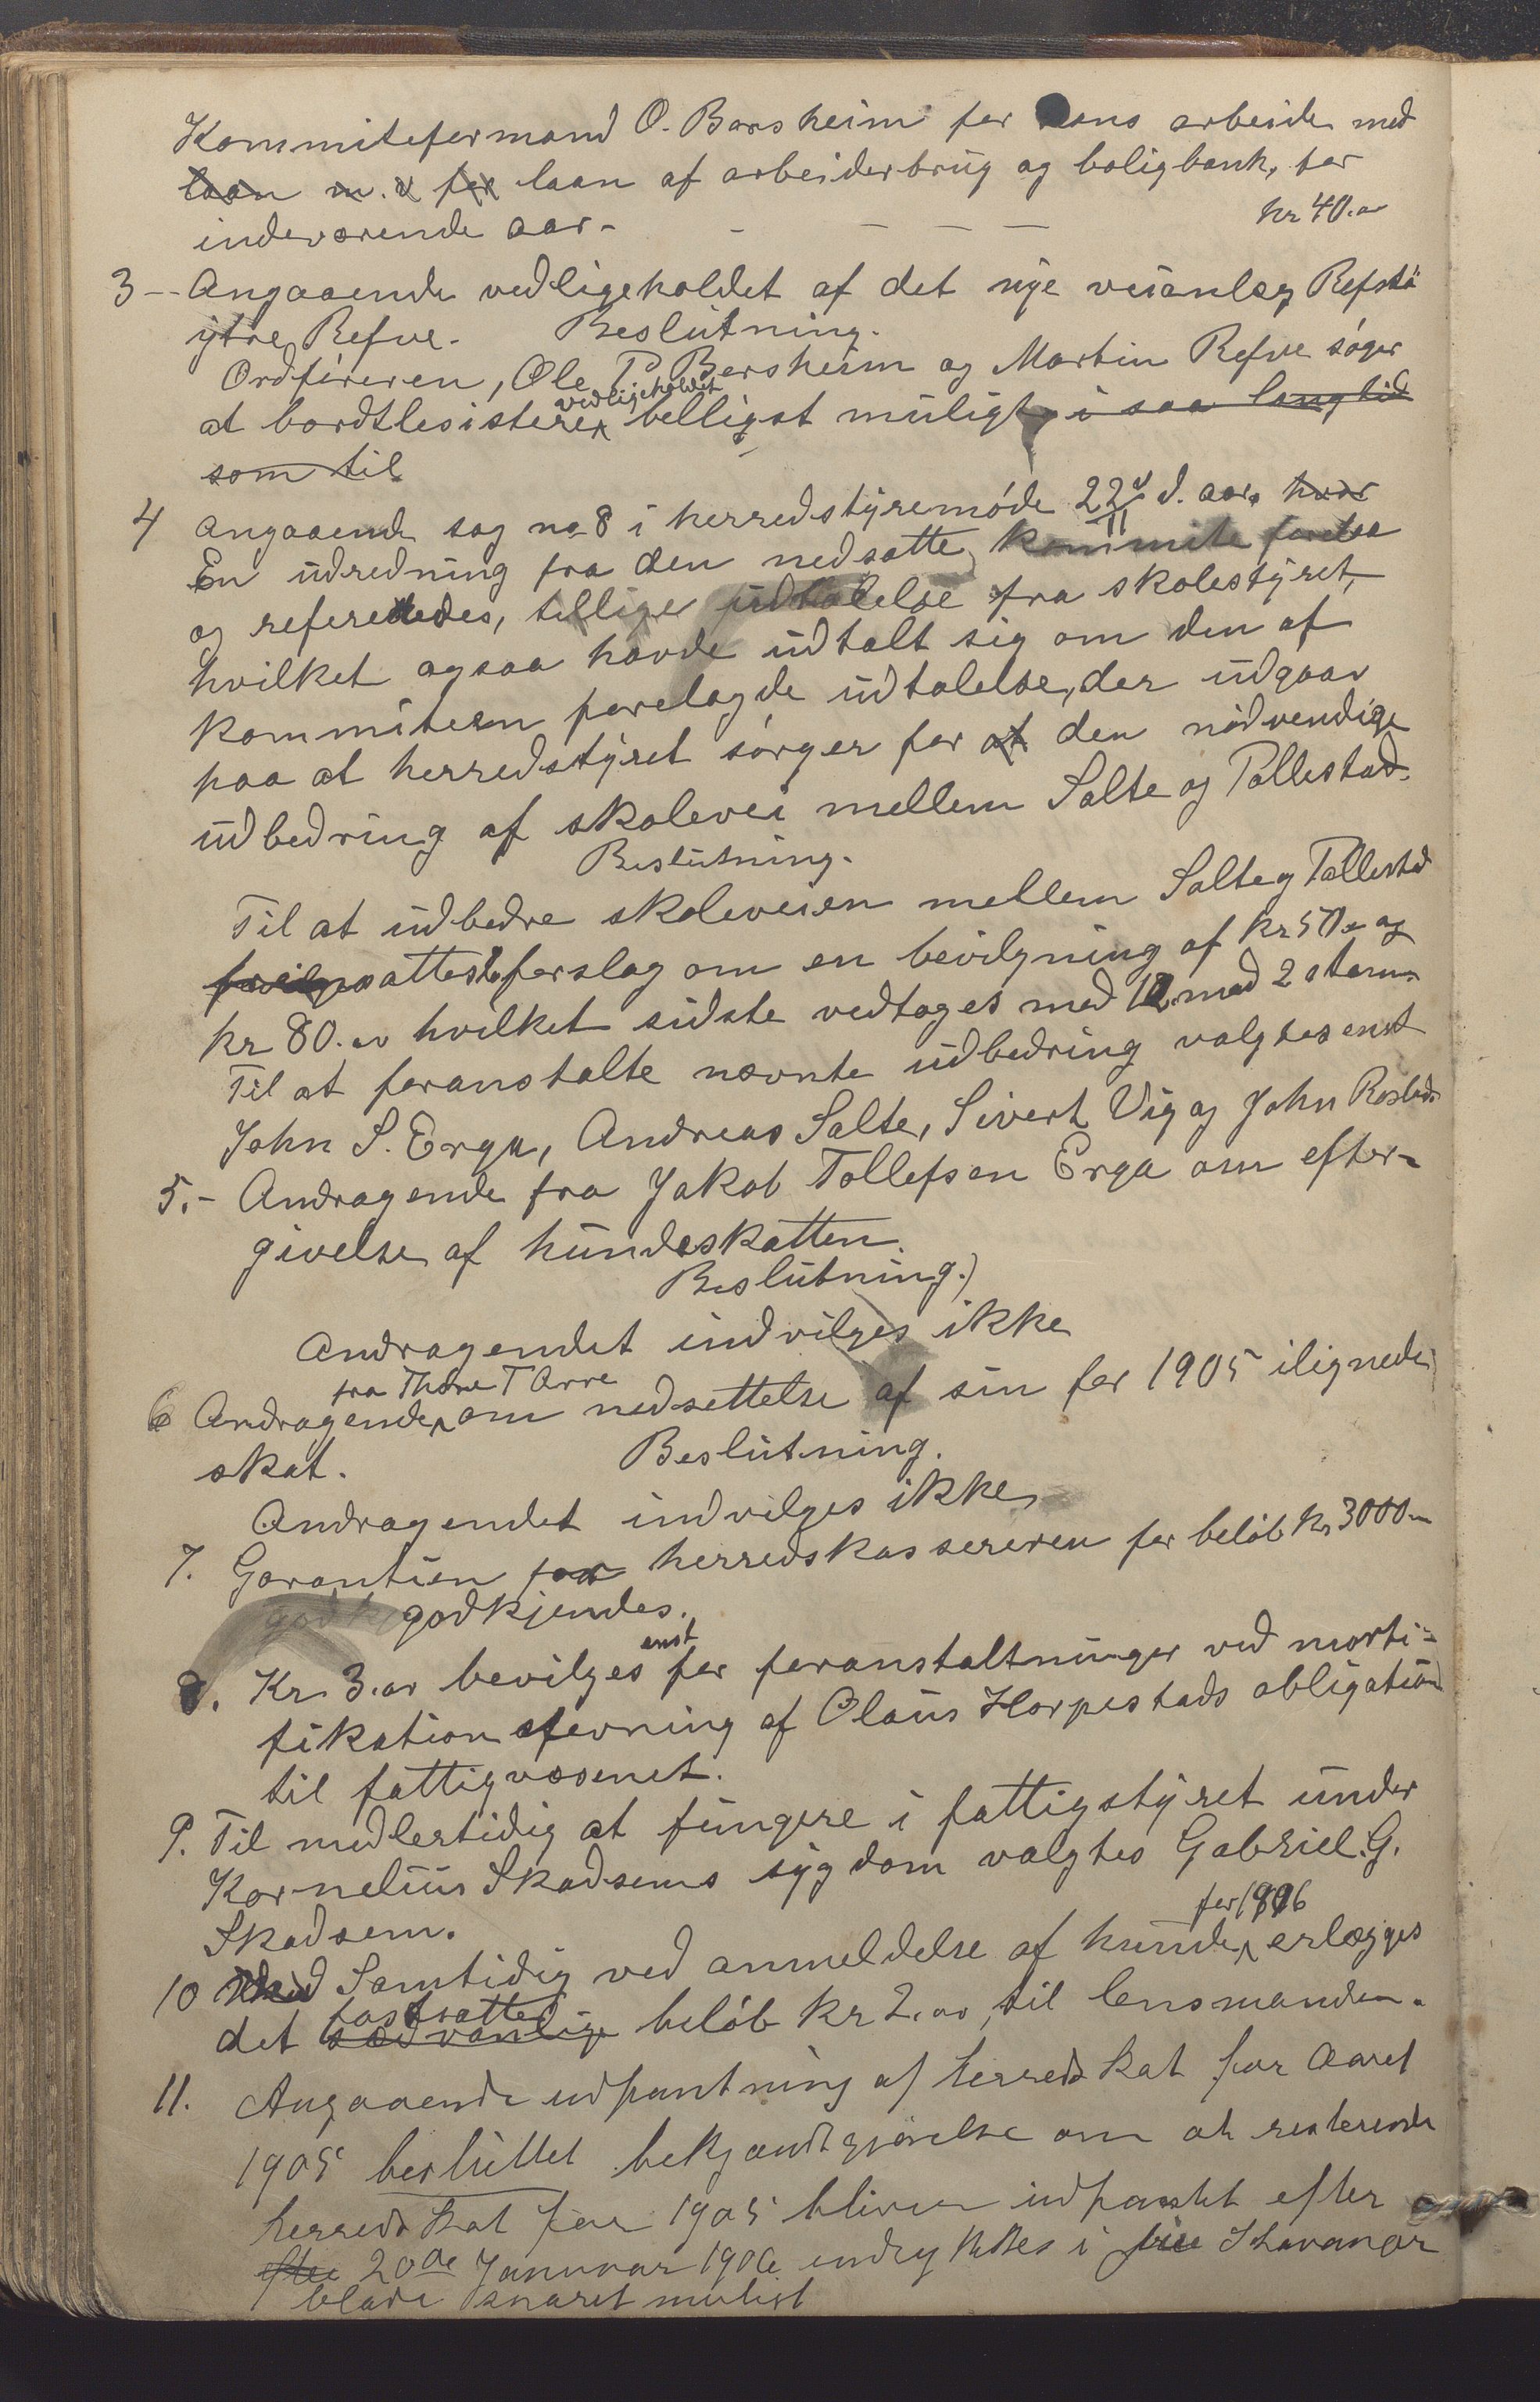 Kommiteformand O. Borsheim for hans arbeide med
laan m. v for laan af arbeiderbrug og boligbank, for
indeværende aar. - - - - kr 40.00
3 -- Angaaende vedligeholdet af det nye veianlæg Refstø
ytre Refve. Beslutning.
Ordføreren, Ole P Bersheim og Martin Refve søger
at bordtlesistere vedligeholdet belligst muligt i saa lang tid
som til
4 Angaaende sag no 8 i herredstyremøde 22/11 d. aar. hvor
En udredning fra den nedsatte kommite
og refereredes, tillige udtalelse fra skolestyret,
hvilket ogsaa havde udtalt sig om den af
kommiteen forelagde udtalelse, der udgaar
paa at herredstyret sørger for at den nødvendige
udbedring af skolevei mellem Salte og Tollestad.
Beslutning.
Til at udbedre skoleveien mellem Salte og Tollestad
sattes forslag om en bevilgning af kr 50.00 og
kr 80.00 hvilket sidste vedtoges med 12 mod 2 stem.
Til at foranstalte nævnte udbedring valgtes enst
John S. Erga, Andreas Salte, Sivert Vig og John
5.- Andragende fra Jakob Tollefsen Erga om efter-
givelse af hundeskatten.
Beslutning.
Andragendet indvilges ikke
6 Andragende fra Thore T Orre om nedsettelse af sin for 1905 ilignede
skat. Beslutning.
Andragendet indvilges ikke
7. Garantien for herredskassereren for beløb kr 3000.00
godkj godkjendes.
8. Kr. 3.00 bevilges enst for foranstaltninger ved morti-
fikation stevning af Olaus Horpestads obligation
til fattigvæsenet.
9. Til midlertidig at fungere i fattigstyret under
Kornelius Skadsems sygdom valgtes Gabriel. G.
Skadsem.
10 Ved Samtidig ved anmeldelse af hunde for 1906 erlægges
det sædvanlige fastsatte beløb kr 2.00, til lensmanden.
11. Angaaende udpantning af herredskat for Aaret
1905 besluttet bekjendtgjørelse om at resterende
herredskat for 1905 bliver udpantet efter
efter 20de Januvar 1906 indrykkes i Stavanger
blade snarest muligt